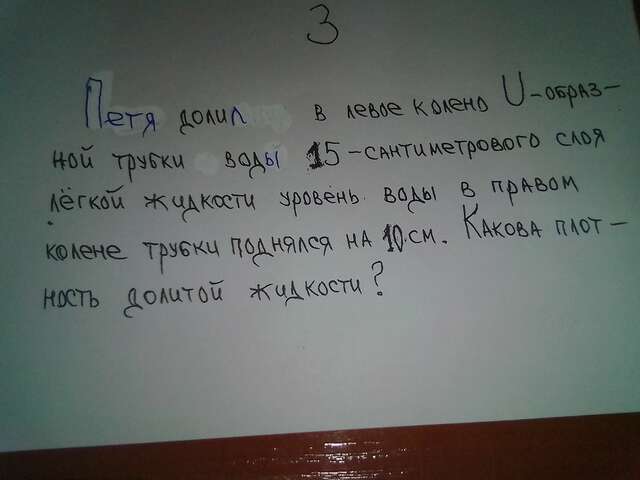 3
Петя долил в левое колено U-образ-
ной трубки воды 15-сантиметрового слоя
лёгкой жидкости уровень воды в правом
колене трубки поднялся на 10 см. Какова плот-
ность долитой жидкости?